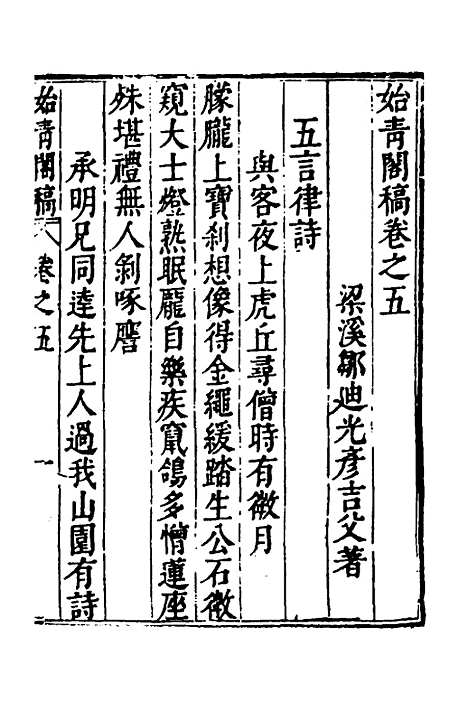 始青閣稿卷之五
梁溪鄒迪光彥吉父著
五言律詩
與客夜上虎丘尋僧時有微月
朦朧上寶刹想像得金繩緩踏生公石微
窺大士燈熟眠龎自樂疾竄鴿多憎蓮座
殊堪禮無人剝啄譍
承明兄同達先上人過我山園有詩
始青閣稿 卷之五 一